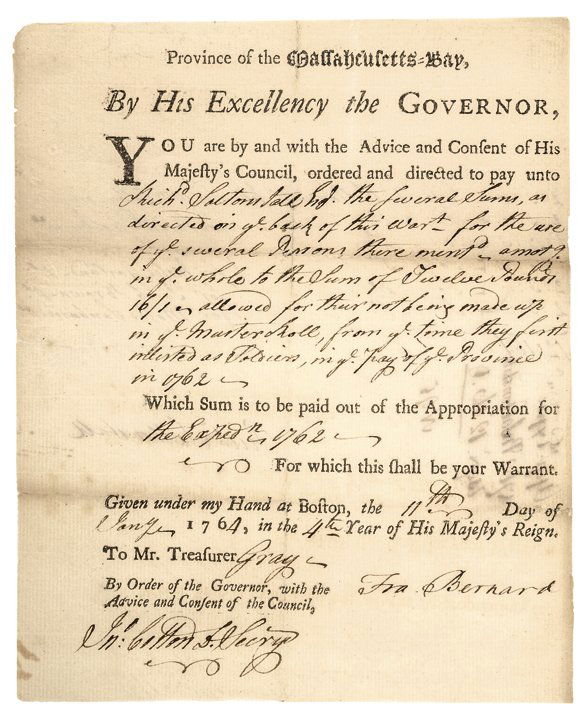 Province of the Massahcusetts=Bay,
By His Excellency the GOVERNOR,
YOU are by and with the Advice and Consent of His
Majesty's Council, ordered and directed to pay unto
Richd. Saltonstall Esqr. the several Sums, as
directed on ye. back of this Wart. for the use
of ye. several Persons there mentd. amotg.
in ye. whole to the Sum of Twelve Pounds
16/1 allowed for their not being made up
in ye. Muster Roll, from ye. time they first
inlisted as Soldiers, in ye. pay of ye. Province
in 1762
Which Sum is to be paid out of the Appropriation for
the Expedn. 1762
For which this shall be your Warrant.
Given under my Hand at Boston, the 11th Day of
Jany 1764, in the 4th Year of His Majesty's Reign.
To Mr. Treasurer Gray
By Order of the Governor, with the
Advice and Consent of the Council,
Fra Bernard
Jno. Cotton D. Secry